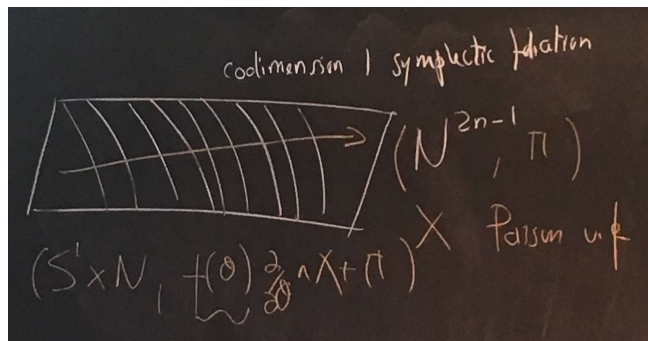 codimension 1 symplectic foliation
(N^{2n-1}, π)
X Poisson v.f
(S^1×N, f(θ) ∂/∂θ ∧ X + π)